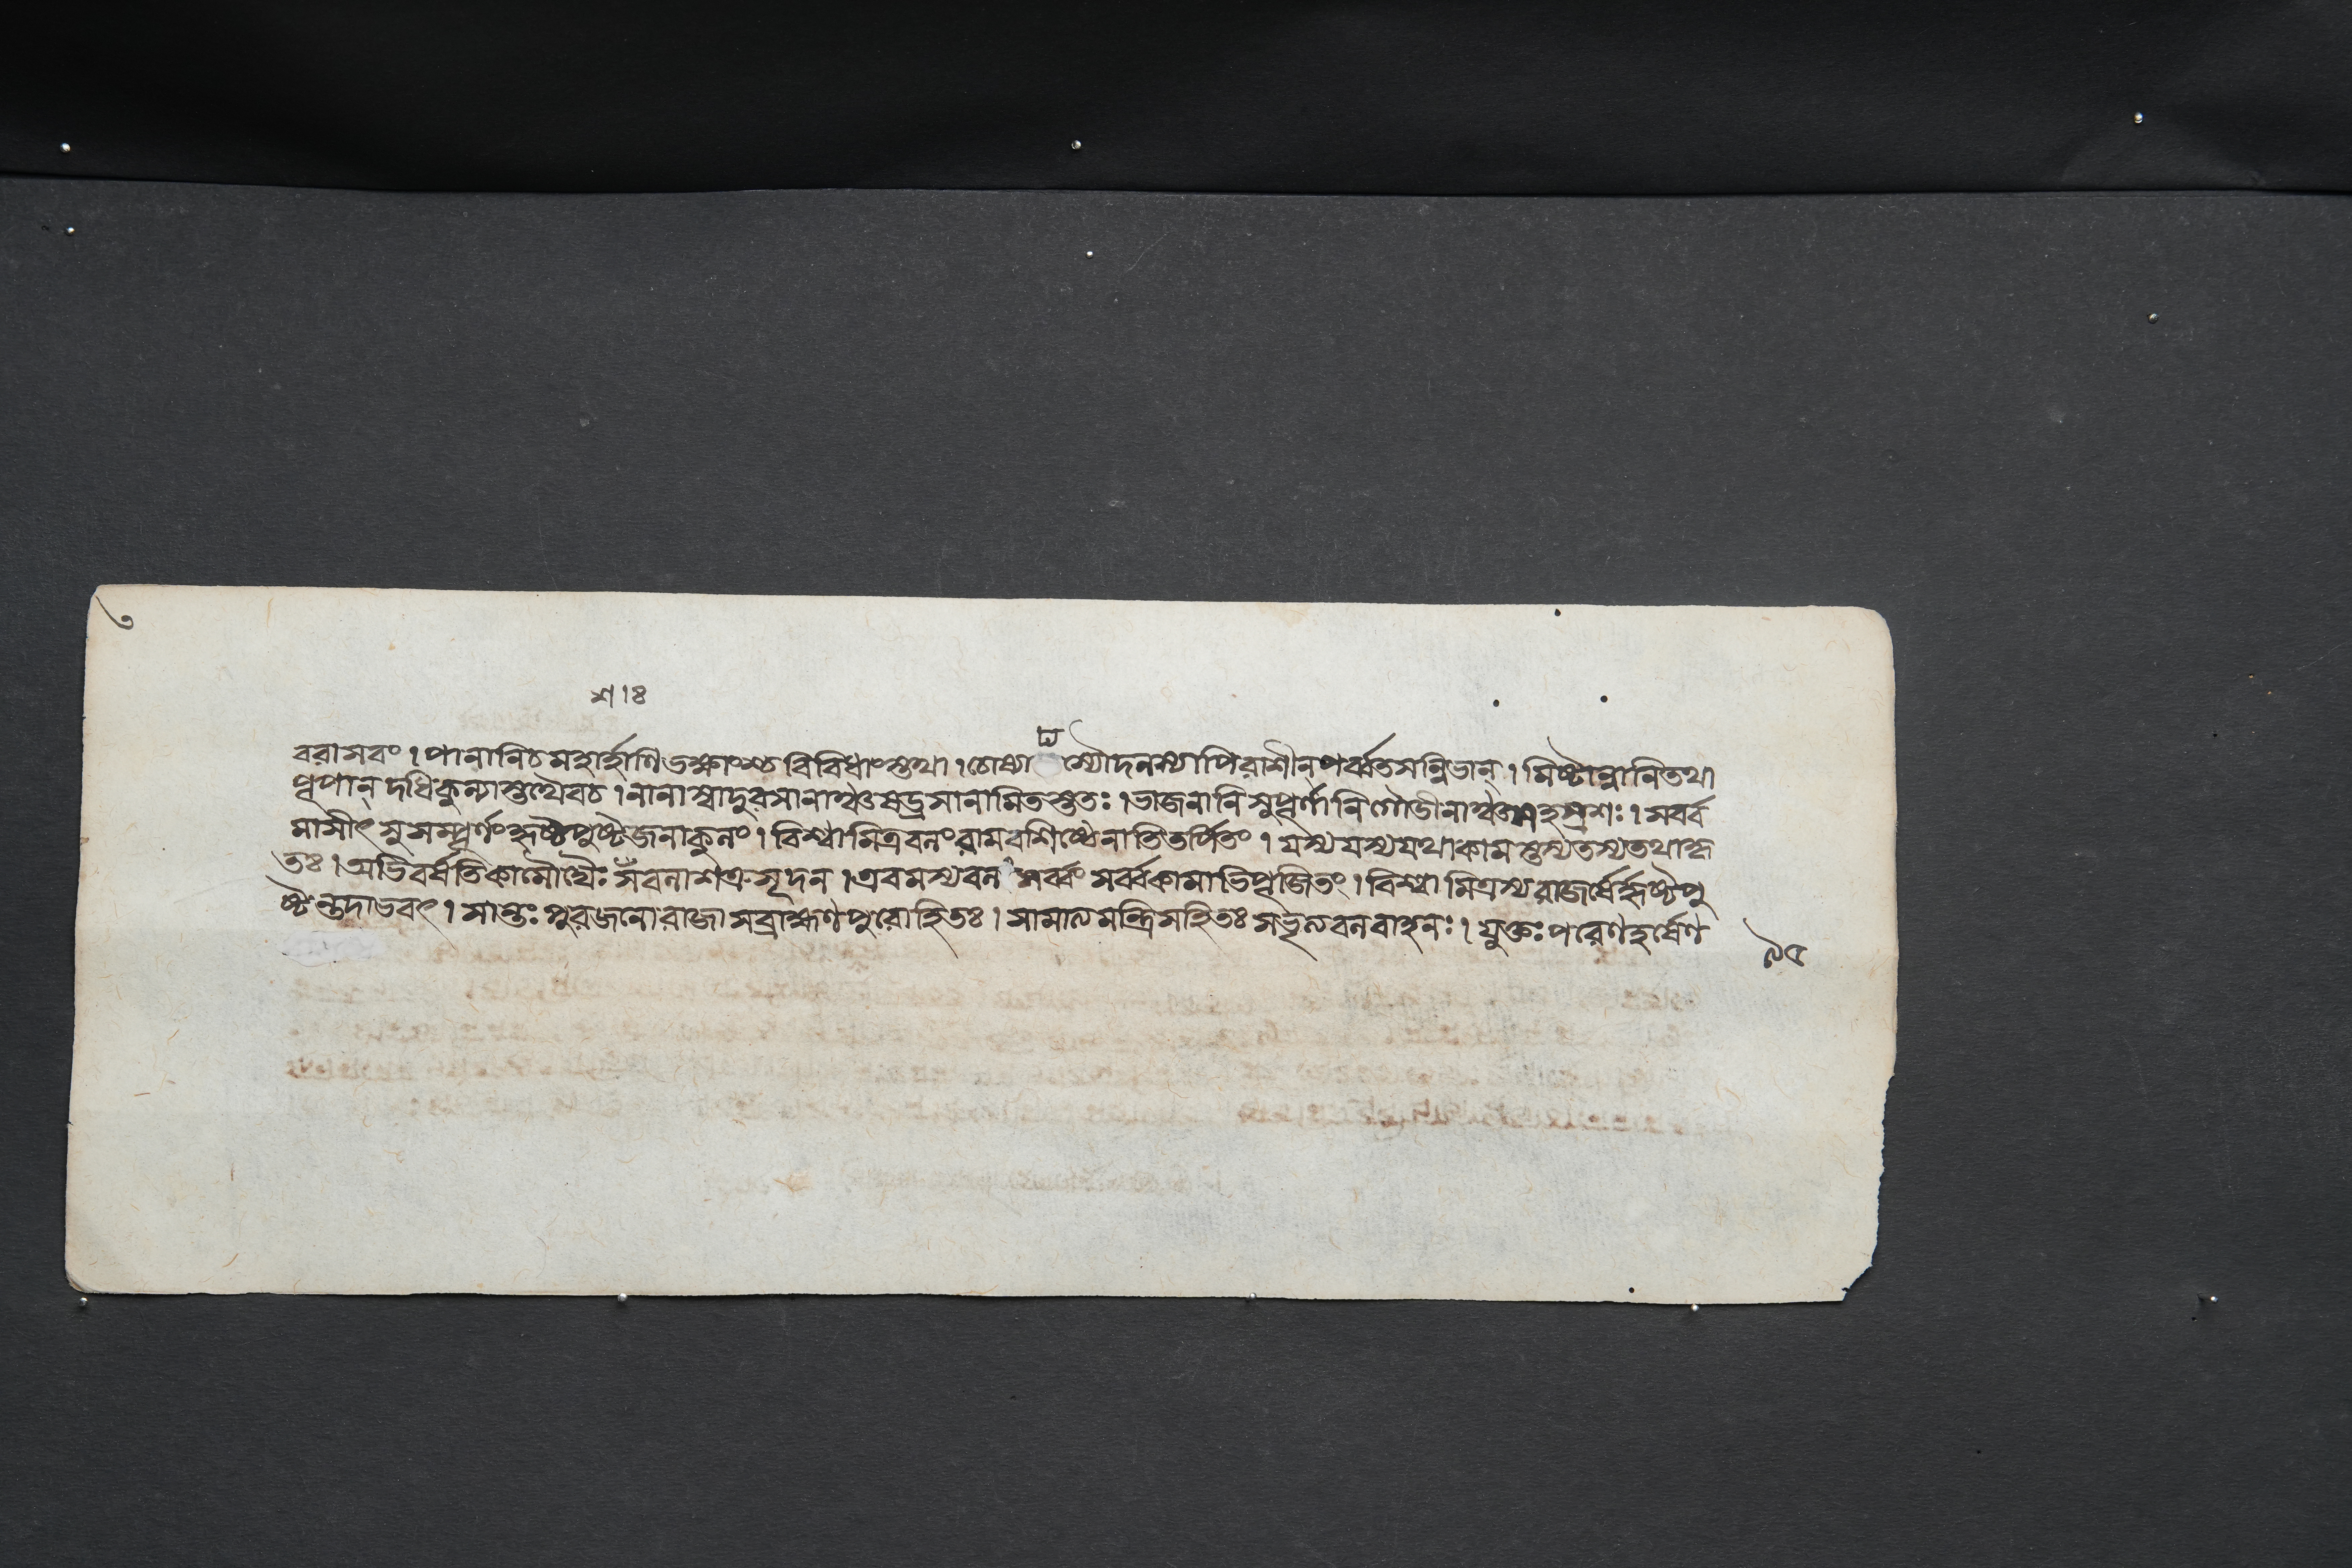 ৩
শ।ঃ
ঢ্য
বরাসবং। পানানিচমহার্হাণিভক্ষ্যাংশ্চবিবিধাংস্তথা। চোষ্যা স্যৌদনস্যাপিরাশীনপর্ব্বতসন্নিভান্। মিষ্টান্নানিতথা
পূপান্দধিকুল্যাস্তথৈবচ। নানাস্বাদুরসানাঞ্চষড্রসানামিতস্ততঃ। ভাজনানিসুপূর্ণানিগৌডীনাঞ্চসহস্রশঃ। সবর্ব
মাসীৎসুসম্পূর্ণংহৃষ্টপুষ্টজনাকুলং। বিশ্বামিত্রবলংরামবশিষ্ঠেনাতিতর্পিতং। যস্যযস্যযথাকামস্তস্যতস্যতথাহ্ন
তঃ। অভিবর্ষতিকামৌঘৈঃ সঁবলাশত্রুসূদন। এবমস্যবলং সর্ব্বং সর্ব্বকামাভিপূজিতং। বিশ্বামিত্রস্যরাজর্ষের্হৃষ্টপু
ষ্টন্তদাভবৎ। সান্তঃপুরজনোরাজাসব্রাহ্মণপুরোহিতঃ। সামাত্যমন্ত্রিসহিতঃ সভৃত্যবলবাহনঃ। যুক্তঃপরেণহর্ষেণ
৯৫